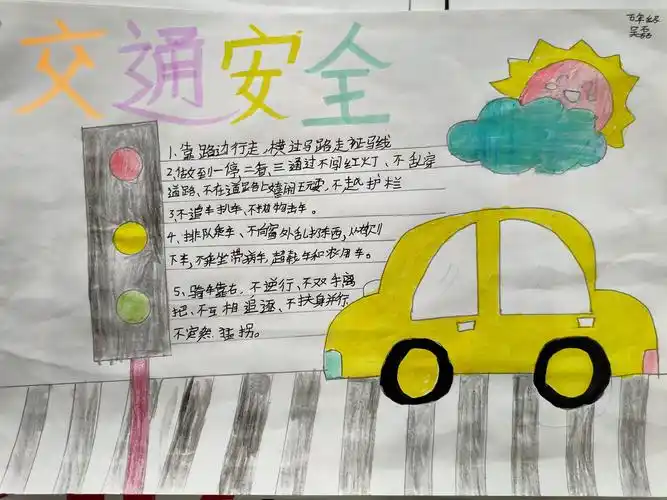 交通安全
五年级
吴磊
1、靠路边行走,横过马路走斑马线
2、做到一停,二看,三通过不闯红灯、不乱穿
道路、不在道路上嬉闹玩耍,不越护栏
3、不追车扒车、不抛物击车。
4、排队乘车、不向窗外乱扔东西,从
下车,不乘坐带病车,超载车和农用车。
5、骑车靠右,不逆行、不双手离
把、不互相追逐、不扶身并行
不突然猛拐。